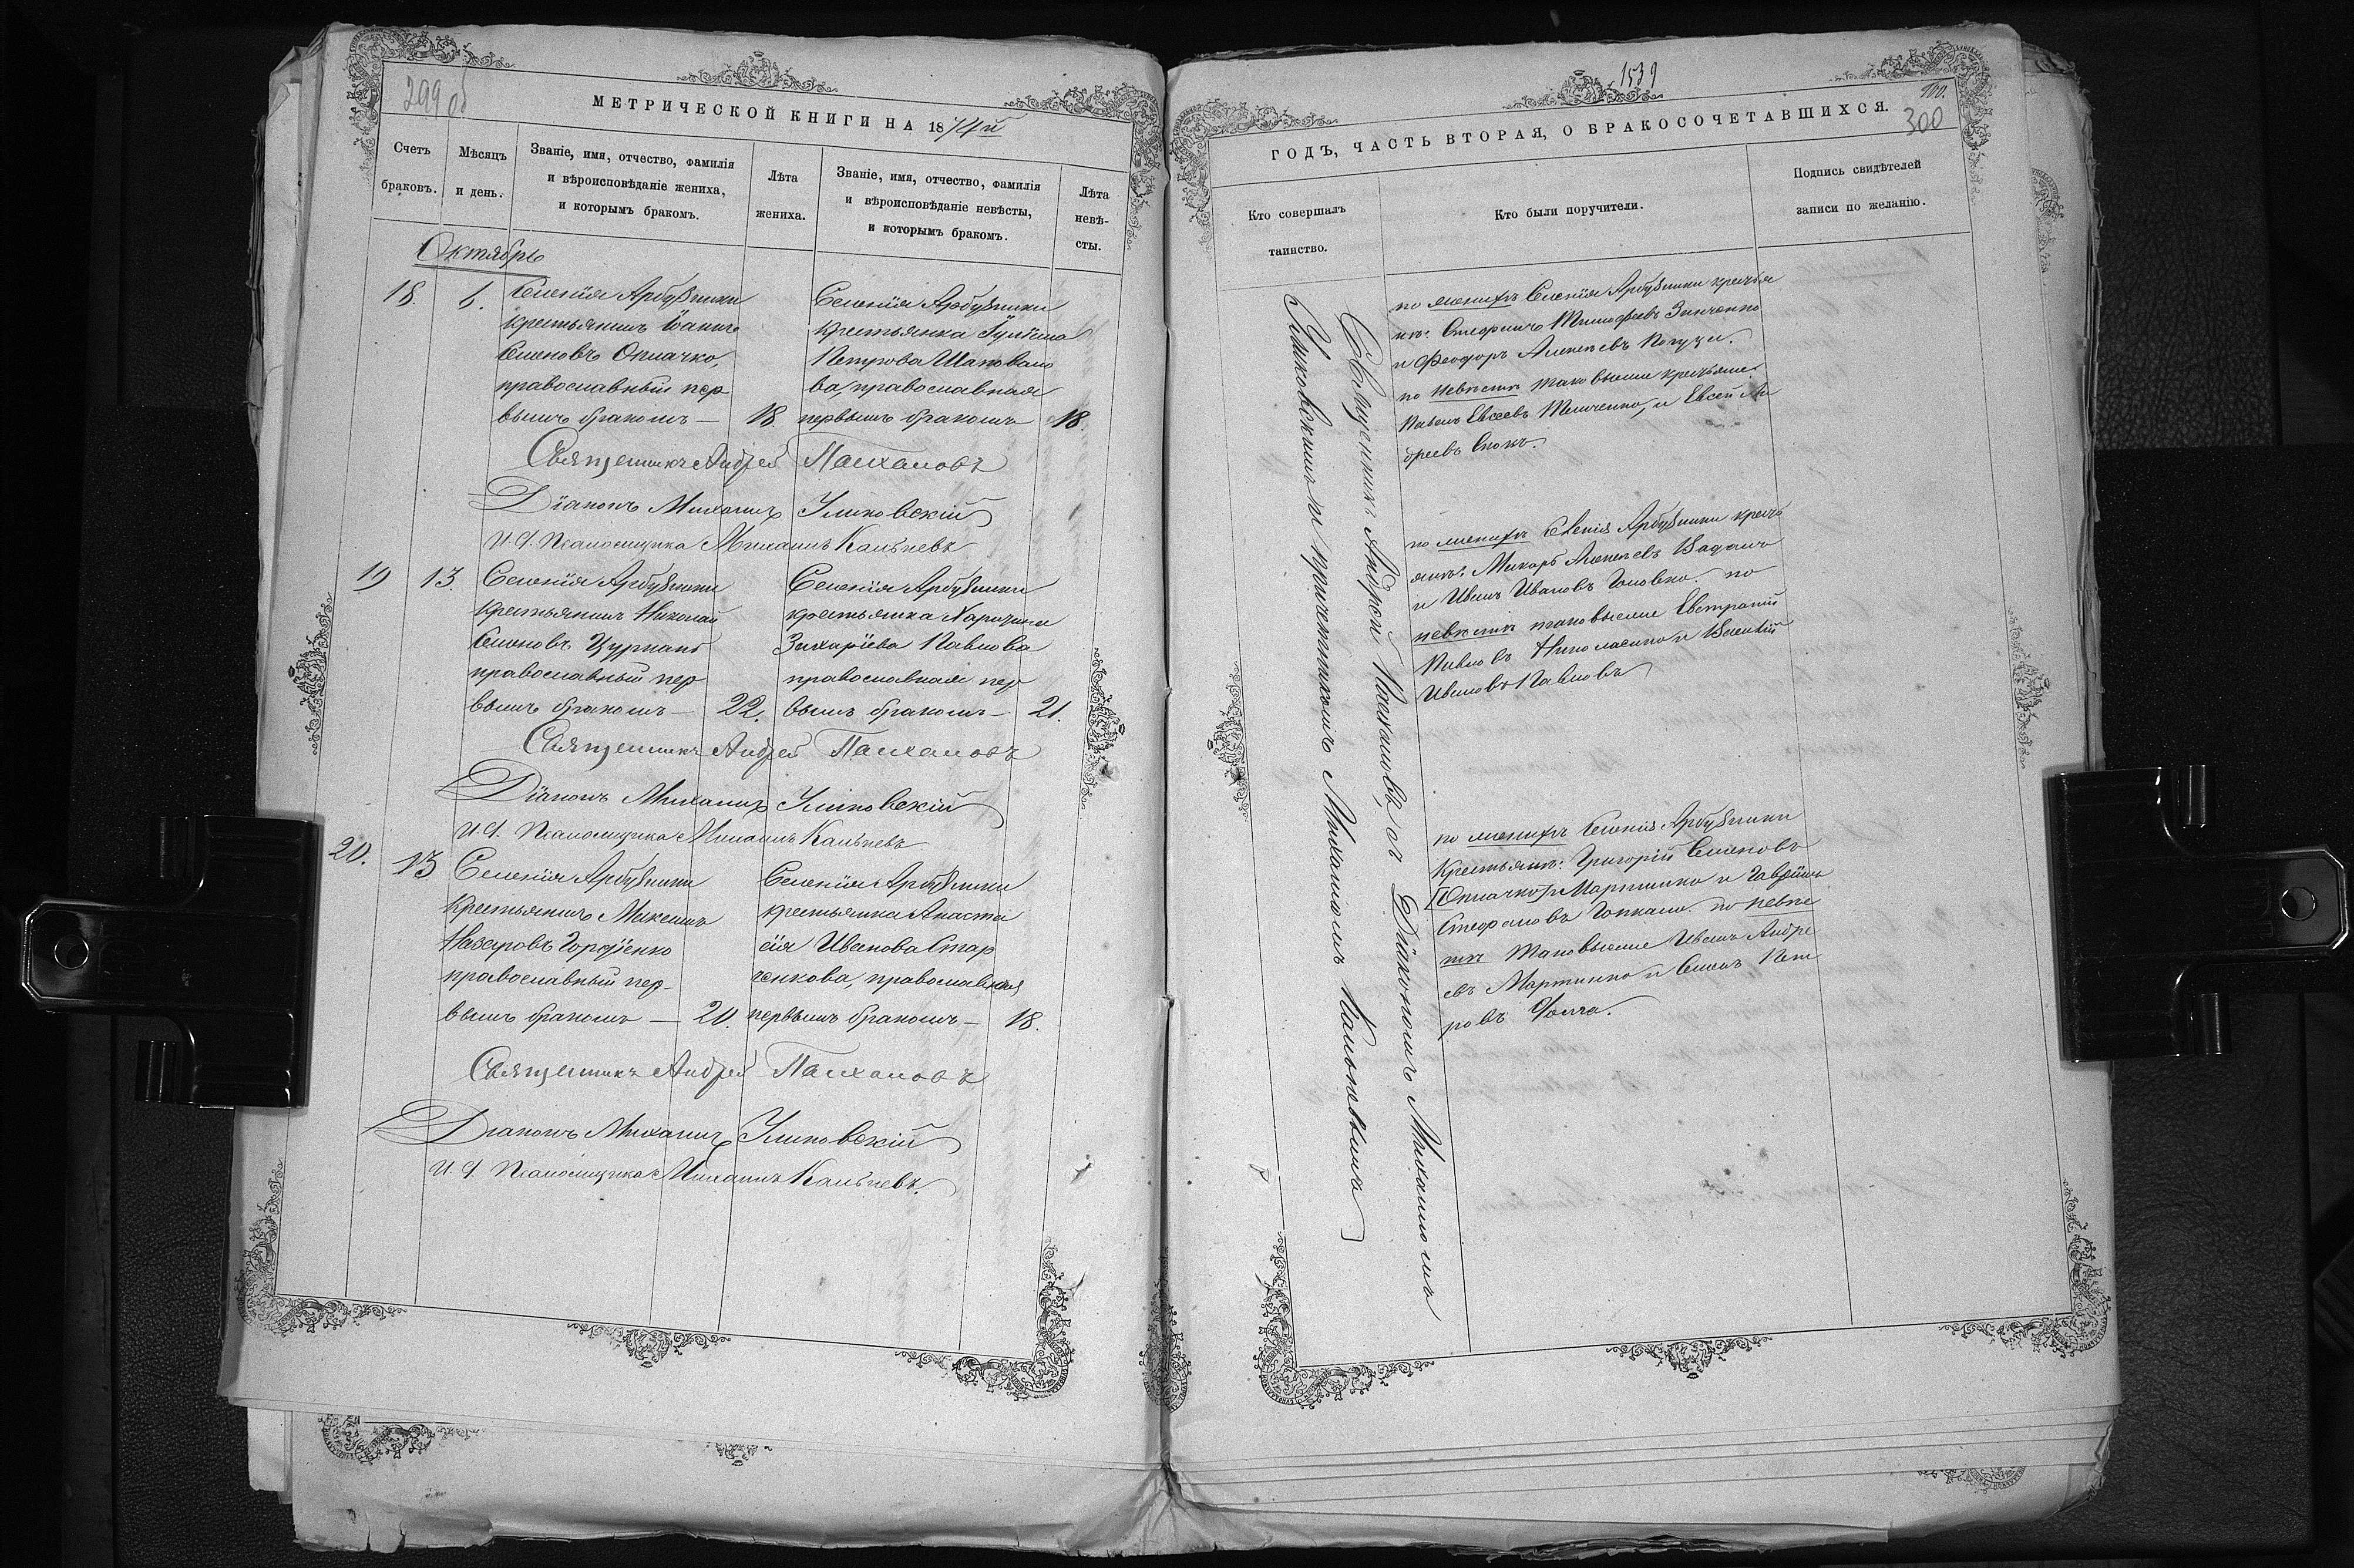 299 об
МЕТРИЧЕСКОЙ КНИГИ НА 1874й
Счетъ браковъ.
Мѣсяцъ и день.
Званіе, имя, отчество, фамилія
и вѣроисповѣданіе жениха,
и которымъ бракомъ.
Лѣта жениха.
Званіе, имя, отчество, фамилія
и вѣроисповѣданіе невѣсты,
и которымъ бракомъ.
Лѣта невѣ-
сты.
Октябрь
18. 6.
Селенія Арбузинки
крестьянинъ
Семеновъ Опачко,
православный пер
вымъ бракомъ — 18.
Селенія Арбузинки
крестьянка
Петрова Шаповало
ва, православная
первымъ бракомъ 18.
Священникъ Андрей Пасхаловъ
Діаконъ Михаилъ
И. д. Псаломщика Михаилъ
19 13.
Селенія Арбузинки
крестьянинъ Николай
Семеновъ Цурканъ
православный пер
вымъ бракомъ — 22.
Селенія Арбузинки
крестьянка Харитина
Захаріева Павлова
православная пер
вымъ бракомъ — 21.
Священникъ Андрей Пасхаловъ
Діаконъ Михаилъ
И. д. Псаломщика Михаилъ
20. 13
Селенія Арбузинки
крестьянинъ Максимъ
Назаровъ Гордѣенко
православный пер-
вымъ бракомъ — 20.
Селенія Арбузинки
крестьянка Анаста
сія Иванова Стар
ченкова, православная
первымъ бракомъ — 18.
Священникъ Андрей Пасхаловъ
Діаконъ Михаилъ
И. д. Псаломщика Михаилъ
1539
300
ГОДЪ, ЧАСТЬ ВТОРАЯ, О БРАКОСОЧЕТАВШИХСЯ.
Кто совершалъ
таинство.
Кто были поручители.
Подпись свидѣтелей
записи по желанію.
Священникъ Андрей Пасхаловъ, съ Діакономъ Михаиломъ
и причетникомъ Михаиломъ
по женихѣ Селенія Арбузинки крестья
Стефанъ Тимофеевъ Зинченко
и Феодоръ Алексѣевъ
по невѣстѣ таковыеже крестьяне
Павелъ Евсеевъ и Евсей Ан
дреевъ
по женихѣ Селенія Арбузинки
Макаръ Алексѣевъ
и Иванъ Ивановъ Головко. по
невѣстѣ таковыеже Евстратій
Павловъ и Василій
Ивановъ Павловъ
по женихѣ Селенія Арбузинки
Крестьян: Григорій Семеновъ
Опачко, Мартинко и
Стефановъ по невѣс
тѣ таковыеже Иванъ Андре
евъ Мартинко и Семенъ Пет
ровъ